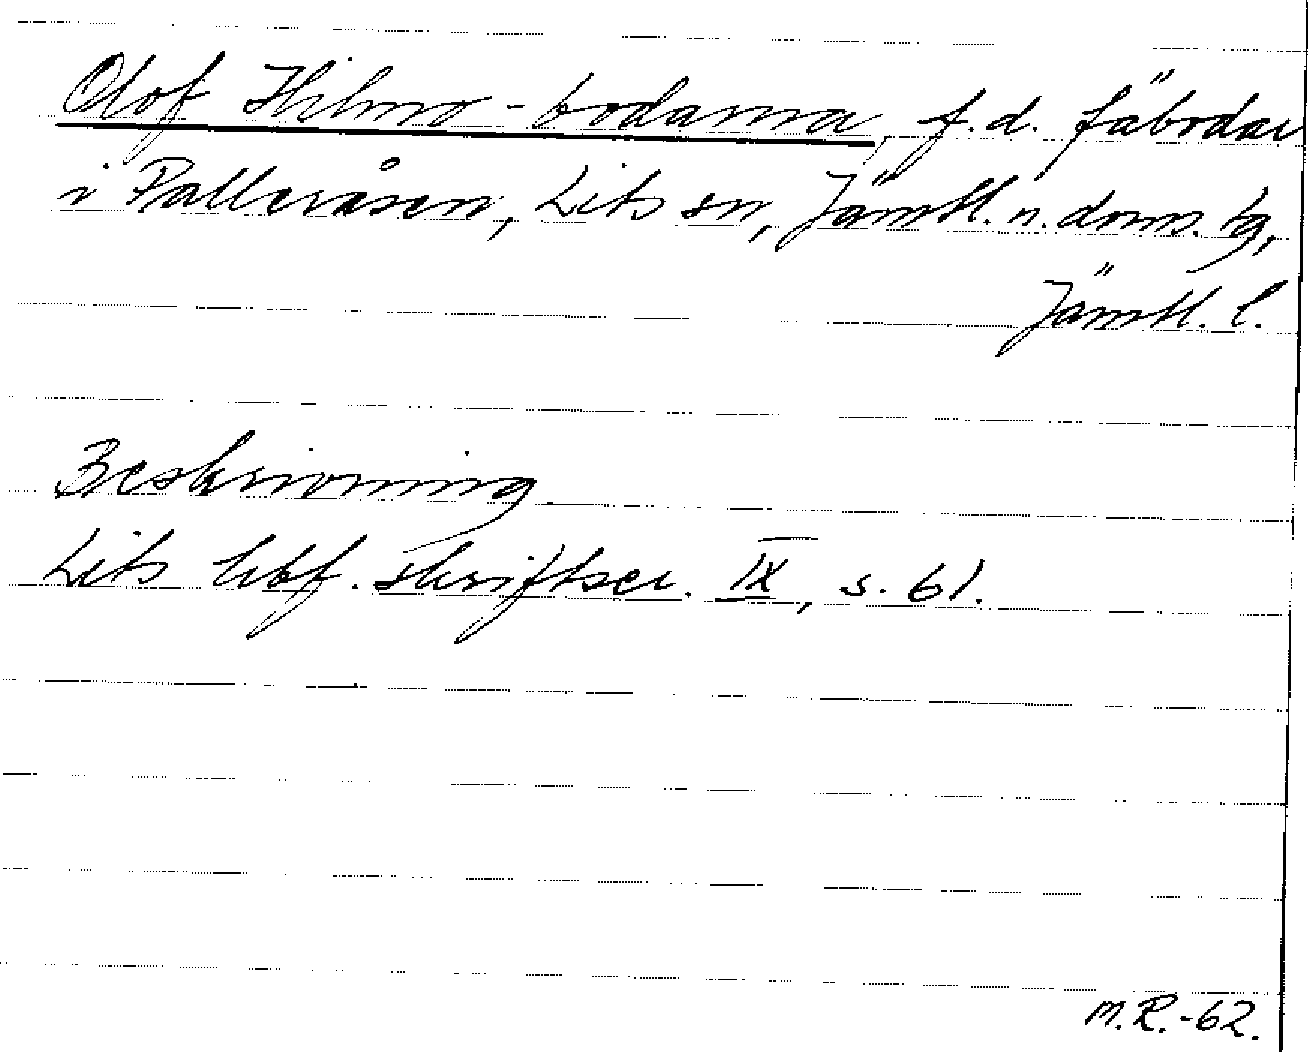 Olof Hilmo-bodarna, f.d. fäbodar
i Palleråsen, Lits sn, Jämtl. n. doms. tg,
Jämtl. l.
Beskrivning
Lits hbf. skriftser. IX, s. 61.
M.R.-62.